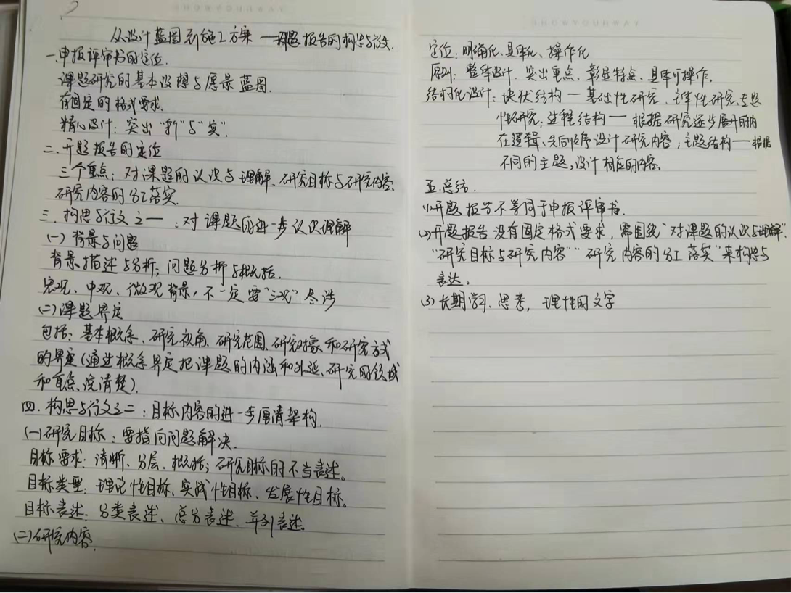 从设计蓝图到施工方案——开题报告的构思与行文
一.申报评审书的定位
课题研究的基本设障与愿景蓝图
有固定的格式要求
精心设计:突出"新"与"实"
二.开题报告的定位
三个重点:对课题的认识与理解、研究目标与研究内容、
研究内容的分工落实
三.构思与行文之一:对课题的进一步认识理解
(一)背景与问题
背景与描述与分析;问题分析与概括.
宏观、中观、微观背景,不一定要"三观"尽涉
(二)课题界定
包括:基本概念、研究视角、研究范围、研究对象和研究方式
的界定(通过概念界定把课题的内涵和外延、研究的领域
和重点说清楚).
四.构思与行文之二:目标内容的进一步厘清架构.
(一)研究目标:要指向问题解决.
目标要求:清晰、分层、概括;研究目标的不当表述。
目标类型:理论性目标、实践性目标、发展性目标.
目标表述:分类表述、总分表述、并列表述
(二)研究内容
定位:明确化、具体化、操作化
原则:整体设计、突出重点、彰显特点、具体可操作.
结构化设计:块状结构——基础性研究、主体性研究、专题
性研究,进程结构——根据研究逐步展开的内
在逻辑、先后顺序设计研究内容,主题结构——根据
不同的主题,设计相应的内容.
五.总结
(1)开题报告不等同于申报评审书.
(2)开题报告没有固定格式要求,需围绕"对课题的认识与理解"
"研究目标与研究内容""研究内容的分工落实"来构思与
表达.
(3)长期学习、思考,理性用文字